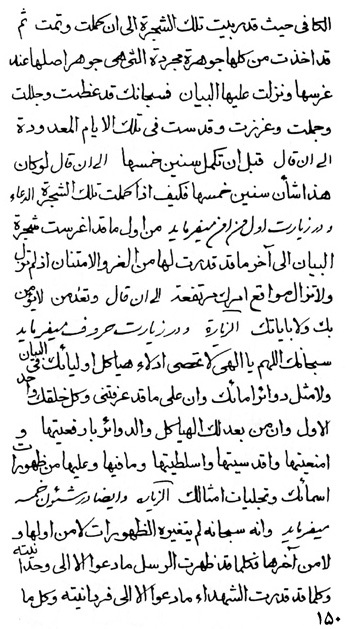 الكافى حيث قد ربيت تلك الشجرة الى ان كملت وتمت ثم
قد اخذت من كلها جوهرة مجردة التى هى جوهر اصلها عند
غرسها ونزلت عليها البيان فسبحانك قد عظمت وجللت
وجملت وعززت وقدست فى تلك الايام المعدودة
الى ان قال قبل ان تكمل سنين خمسها الى ان قال لو كان
هذا شأن سنين خمسها فكيف اذا كملت تلك الشجرة الدعاء
ودر زيارت اول من آمن ميفرمايد من اول ما قد اغرست شجرة
البيان الى آخر ما قد قدرت لها من العز والامتنان اذ لم تزل
ولا تزال مواقع امرك مرتفعة الى ان قال وتعذبن من لا يؤمن
بك ولا باياتك الزيارة ودر زيارت حروف ميفرمايد
سبحانك اللهم يا الهى لا تحصى ادلاء هياكل اوليائك فى البيان
ولا مثل دوائر امائك وان على ما قد عرفتنى وكل خلقك واحد
الاول وان من بعد تلك الهياكل والدوائر بارفعيتها و
امنعيتها واقدسيتها واسلطيتها وما فيها وعليها من ظهورات
اسمائك وتجليات امثالك الزياره وايضا در شئون خمسه
ميفرمايد وانه سبحانه لم يتغيره الظهورات لا من اولها و
لا من آخرها فكلما قد ظهرت الرسل ما دعوا الا الى وحدانيته
وكلما قد قدرت الشهداء ما دعوا الا الى فردانيته وكل ما
١٥٠